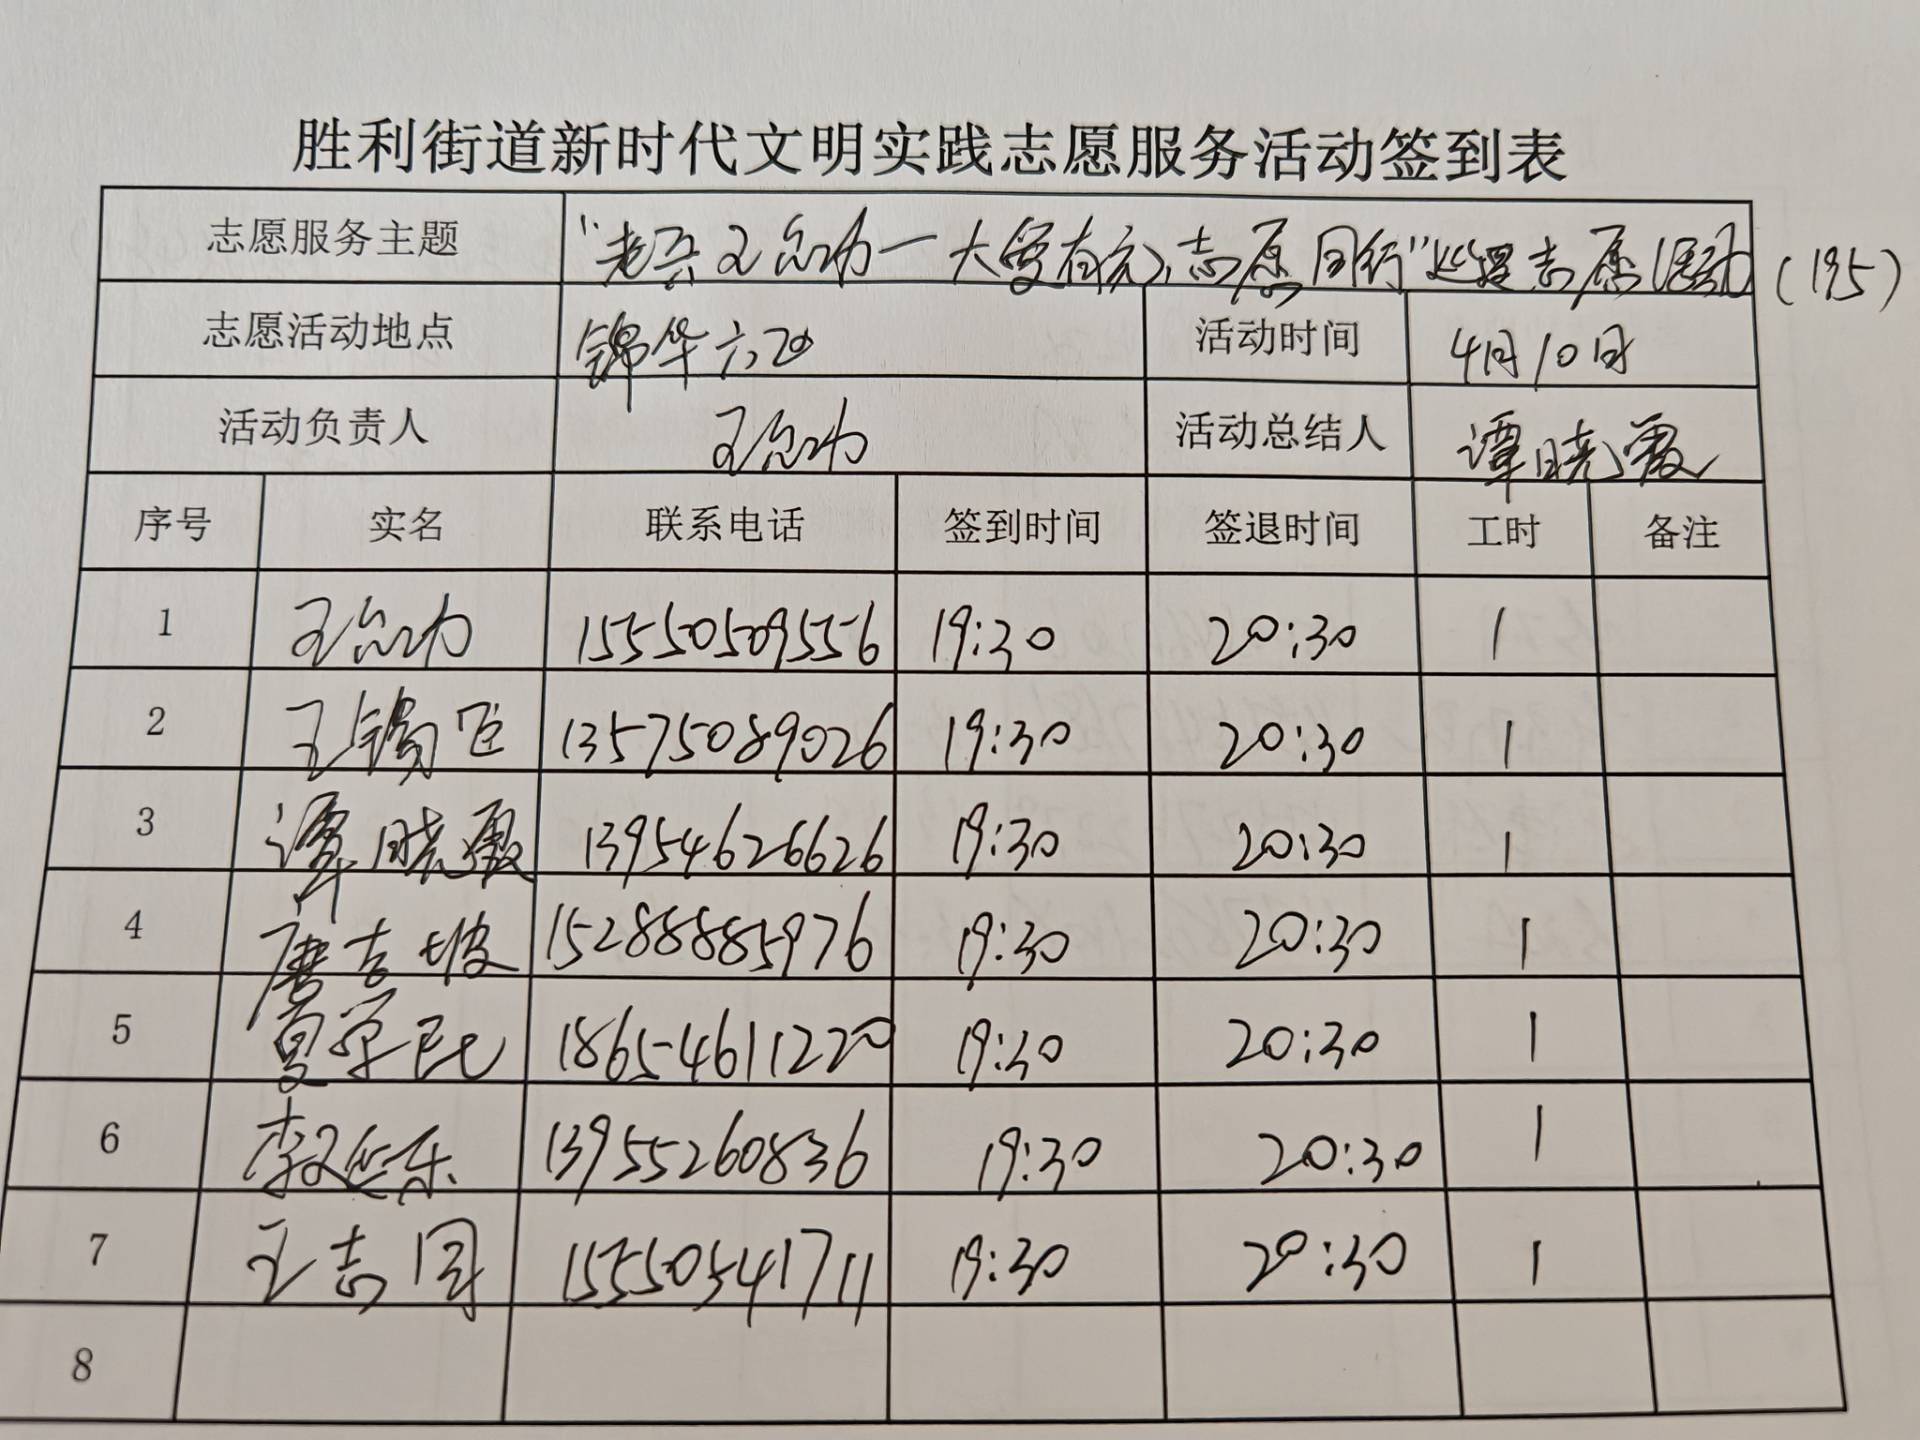 胜利街道新时代文明实践志愿服务活动签到表
志愿服务主题 "老兵王忠功一大爱有完,志愿同行"巡逻志愿活动(195)
志愿活动地点 锦华六区 活动时间 4月10日
活动负责人 活动总结人 谭晓霞
序号 实名 联系电话 签到时间 签退时间 工时 备注
1 15550509556 19:30 20:30 1
2 王锡飞 13575089026 19:30 20:30 1
3 谭晓霞 13954626626 19:30 20:30 1
4 唐吉坡 15288885976 19:30 20:30 1
5 夏学民 18654611220 19:30 20:30 1
6 李延乐 13955260836 19:30 20:30 1
7 王志国 15550541711 19:30 20:30 1
8